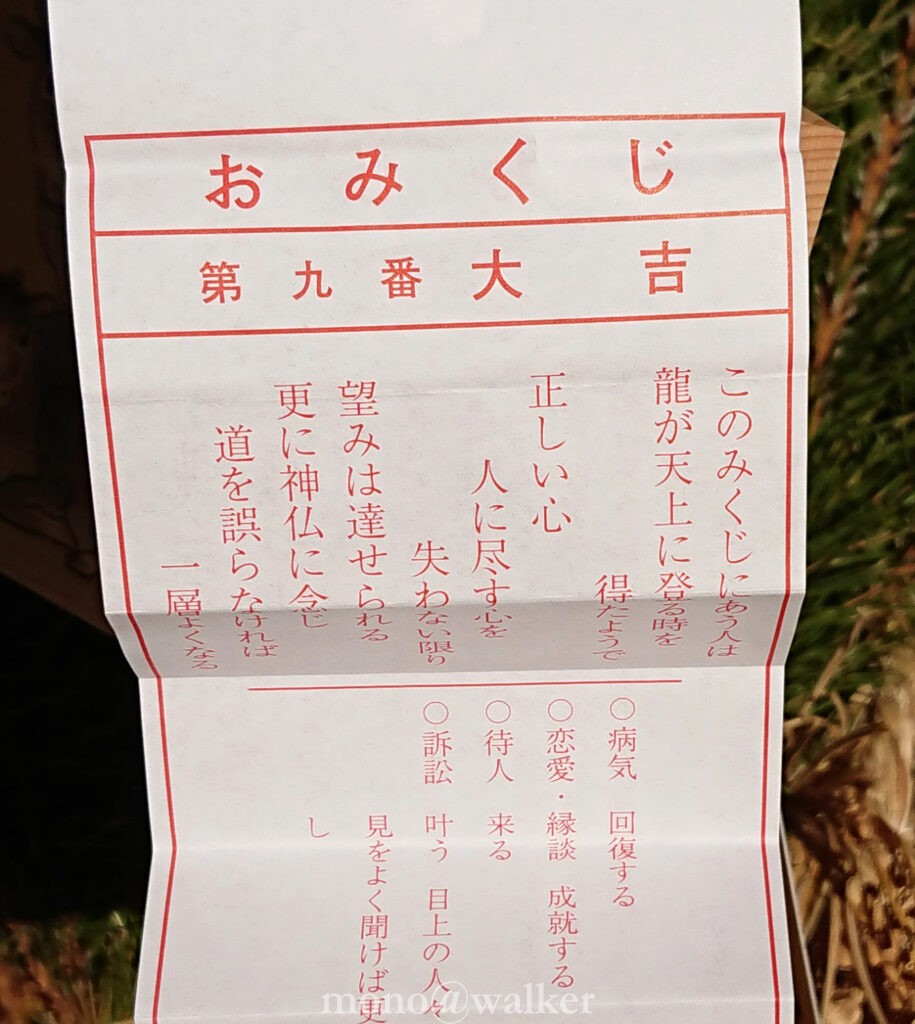 おみくじ
第九番大吉
このみくじにあう人は
龍が天上に登る時を
得たようで
正しい心
人に尽す心を
失わない限り
望みは達せられる
更に神仏に念じ
道を誤らなければ
一層よくなる
○病気 回復する
○恋愛・縁談 成就する
○待人 来る
○訴訟 叶う 目上の人々
見をよく聞けば更
し
mono@walker